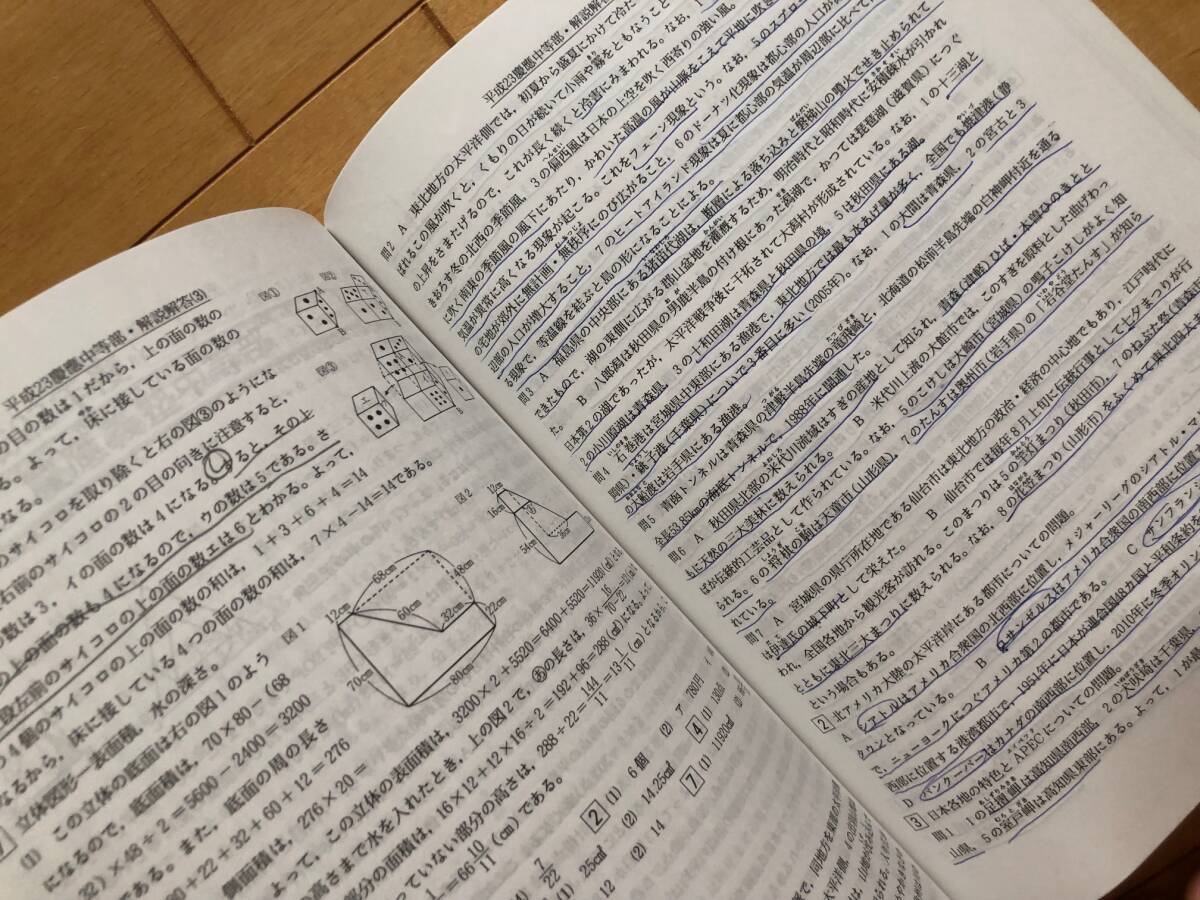 平成23慶應中等部・解説解答(3)
の目の数は1だから、上の面の数の
る。よって、床に接している面の数の
なる。
のサイコロを取り除くと右の図③のようにな
右前のサイコロの2の目の向きに注意すると、
数は3、イの面の数は4になる
ると、その上
の上の面の数も4になるので、ゥの数は5である。さ
段左前のサイコロの上の面の数エは6とわかる。よって、
4個のサイコロの上の面の数の和は、1+3+6+4=14
なるから、床に接している4つの面の数の和は、7×4-14=14である。
立体図形―表面積、水の深さ。
(1) この立体の底面は右の図1のよう
になるので、底面積は、70×80-(68
32)×48÷2=5600-2400=3200
である。また、底面の周の長さ
80+22+32+60+12=276
側面積は、276×20=
よって、この立体の表面積は、3200×2+5520=6400+5520=11920(㎠)
の高さまで水を入れたとき、上の図2で、㋐の長さは、
部分の面積は、16×12+12×16÷2=192+96=288(㎠)になる。
っていない部分の高さは、288÷22=
(cm)である。
図①
図③
図1
図2
68cm
48cm
60cm
12cm
32cm
22cm
70cm
80cm
12cm
16cm
54cm
2 (1) 6個 (2) ア 780円
4 (1) 130点
(1) 25㎠ (2) 14.25㎠
7 (1) 11920㎠
(2) 14
平成23慶應中等部・解説解答
問2 A 東北地方の太平洋側では、初夏から盛夏にかけて冷た
ばれるこの風が吹くと、くもりの日が続いて小雨や霧をともなうこと
の上昇をさまたげるので、これが長く続くと冷害にみまわれる。なお、1
をおろす冬の北西の季節風、3の偏西風は日本の上空を吹く西寄りの強い風。
に吹く南東の季節風の風下にあたり、かわいた高温の風が山脈をこえて平地に吹き
気温が異常に高くなる現象が起こる。これをフェーン現象という。なお、5のスプロ
の宅地が郊外に無計画・無秩序にのび広がること、6のドーナツ化現象は都心部の人口が
辺部の人口が増大すること、7のヒートアイランド現象は夏に都心部の気温が周辺部に比べて
る現象で、等温線を結ぶと島の形になることによる。
問3 A 福島県の中央部にある猪苗代湖は、断層による落ち込みと磐梯山の噴火でせき止められて
できたもので、湖の東側に広がる郡山盆地を灌漑するため、明治時代と昭和時代に安積疏水が引かれ
た。 B 八郎潟は秋田県の男鹿半島の付け根にあった潟湖で、かつては琵琶湖(滋賀県)につぐ
日本第2の湖であったが、太平洋戦争後に干拓されて大潟村が形成されている。なお、1の十三湖と
2の小川原湖は青森県、3の十和田湖は青森県と秋田県の境、5は秋田県にある湖。
問4 石巻港は宮城県中東部にある漁港で、東北地方では最も水あげ量が多く、全国でも焼津港(静
岡県)、銚子港(千葉県)について3番目に多い(2005年)。なお、1の大間は青森県、2の宮古と3
の大船渡は岩手県にある漁港。
問5 青函トンネルは青森県の津軽半島先端の竜飛崎と、北海道の松前半島先端の白神岬付近を通る
全長53.85kmの海底トンネルで、1988年に開通した。
問6 A 秋田県北部の米代川流域はすぎの産地として知られ、青森(津軽)ひば、木曽ひのきとと
もに天然の三大美林に数えられる。 B 米代川上流の大館市では、このすぎを原料とした曲げわっ
ぱが伝統的工芸品として作られている。なお、5のこけしは大崎市(宮城県)の鳴子こけしがよく知
6の将棋の駒は天童市(山形県)、7のたんすは奥州市(岩手県)の「岩谷堂たんす」が知ら
れている。
問7 A 宮城県の県庁所在地である仙台市は東北地方の政治・経済の中心地でもあり、江戸時代に
は伊達氏の城下町として栄えた。 B 仙台市では毎年8月上旬に伝統行事として七夕まつりが行
われ、全国各地から観光客が訪れる。このまつりは5の竿灯まつり(秋田市)、7のねぶた祭り(青森
とともに東北三大まつりに数えられる。なお、8の花笠まつり(山形市)をふくめて東北四大
という場合もある。
2 北アメリカ大陸の太平洋岸にある都市についての問題。
A シアトルはアメリカ合衆国の北西部に位置し、メジャーリーグのシアトル・マ
タウンとなっている。 B ロサンゼルスはアメリカ合衆国の南西部に位置
で、ニューヨークにつぐアメリカ第2の都市である。 C サンフラン
西部に位置する港湾都市で、1951年に日本が連合国48カ国と平和条約
D バンクーバーはカナダの南西部に位置し、2010年に冬季オリ
3 日本各地の特色とAPECについての問題。
問1 1の足摺岬は高知県南西部、2の犬吠埼は千葉県
山県、5の室戸岬は高知県東部にある。よって、1が